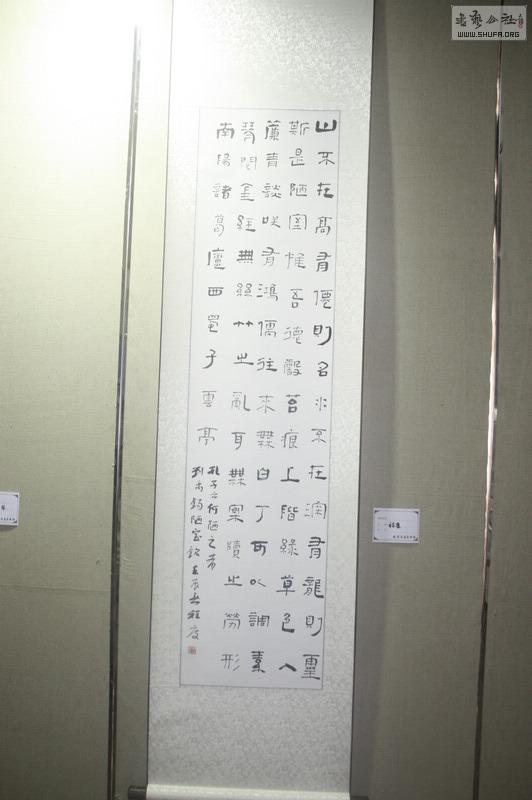 山不在高有僊則名水不在深有龍則靈
斯是陋室惟吾德馨苔痕上階綠草色入
簾青談笑有鴻儒往來無白丁可以調素
琴閱金經無絲竹之亂耳無案牘之勞形
南陽諸葛廬西蜀子雲亭
孔子云何陋之有
劉禹錫陋室銘壬辰
书艺公社
WWW.SHUFA.ORG